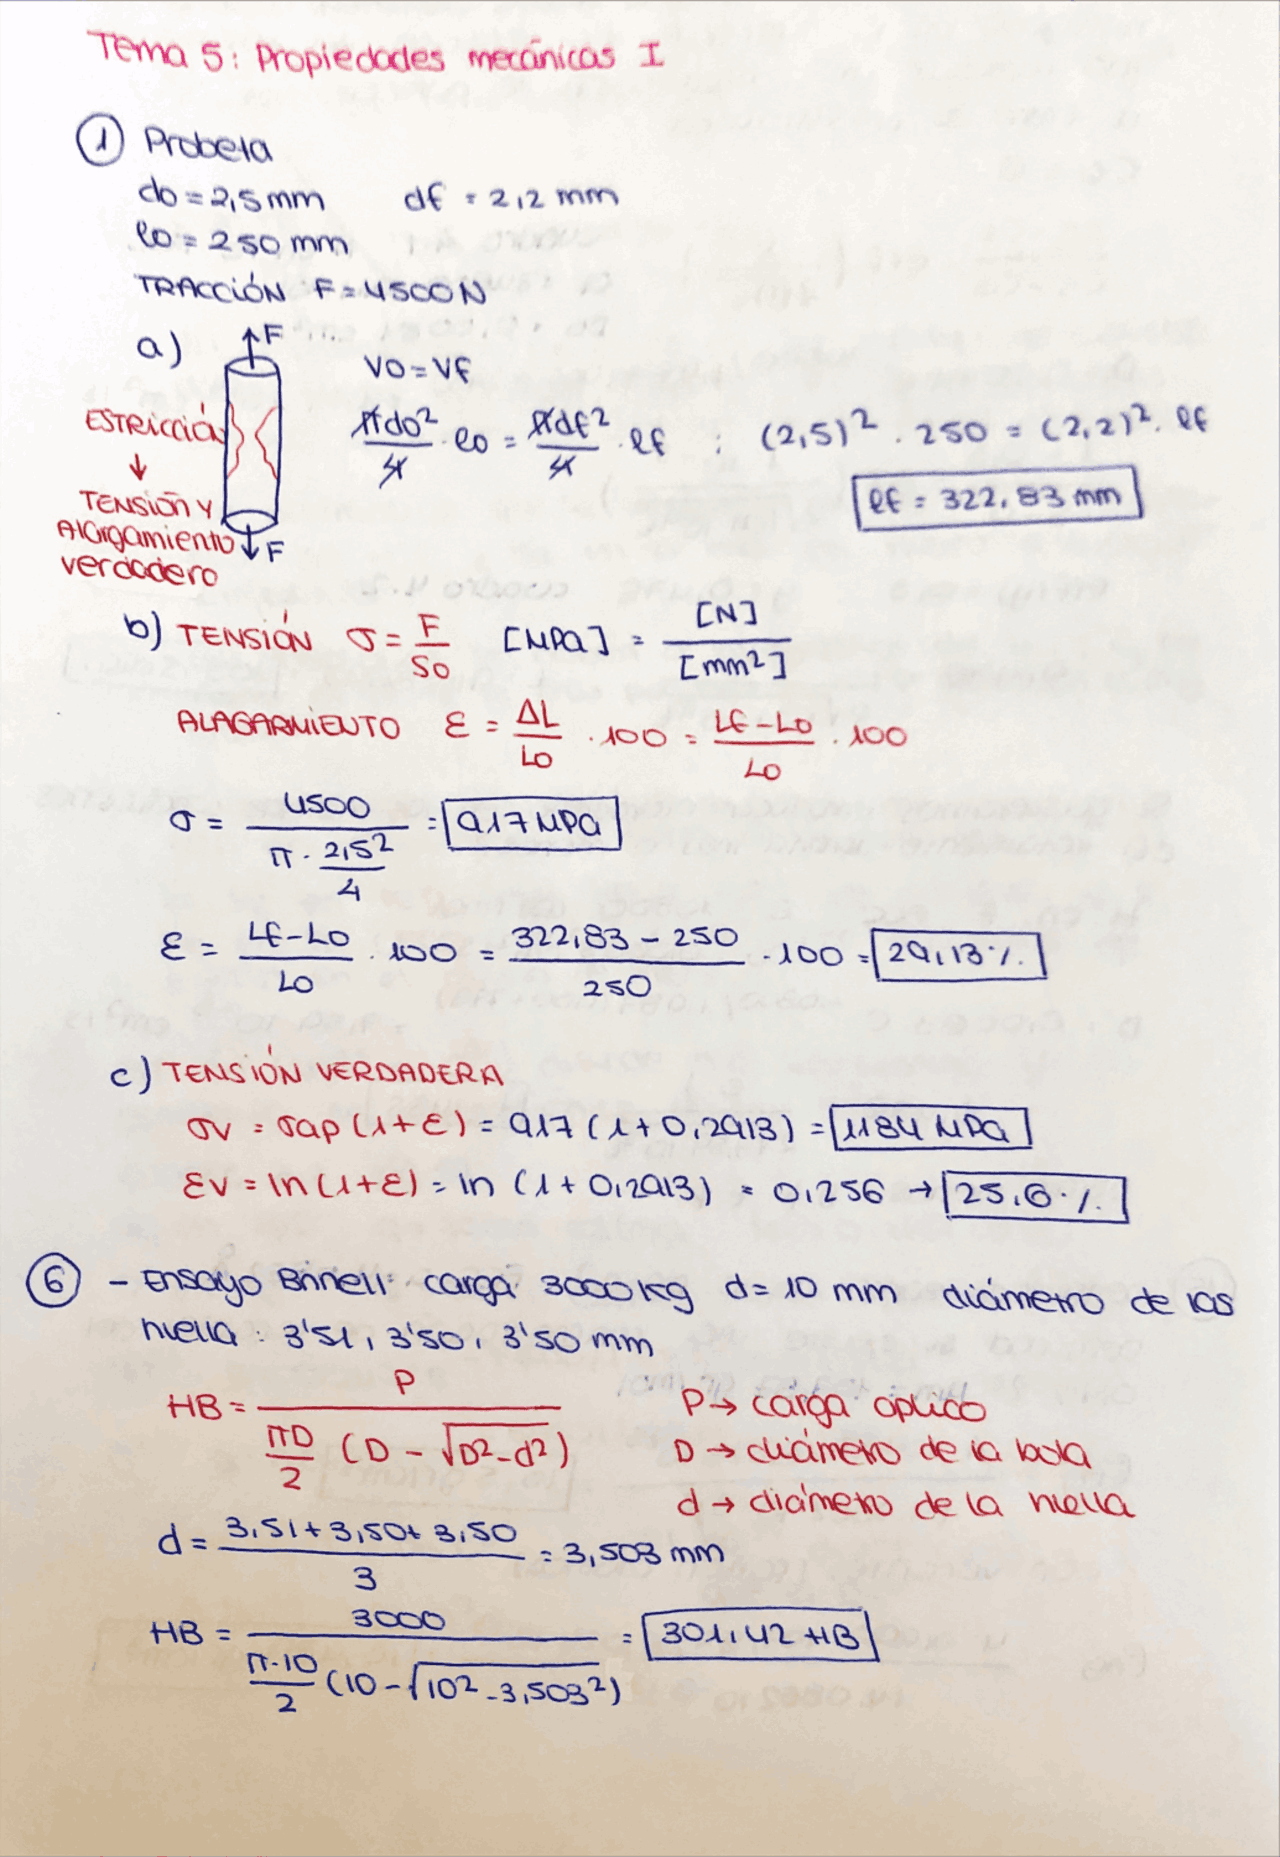 Tema 5: Propiedades mecánicas I
① Probeta
do = 2,5 mm df = 2,2 mm
lo = 250 mm
TRACCIÓN F = 4500 N
a) F
ESTRICCIÓN
↓
TENSIÓN Y
Alargamiento
verdadero
F
Vo = Vf
πdo²/4 · lo = πdf²/4 · lf ; (2,5)² · 250 = (2,2)² · lf
lf = 322,83 mm
b) TENSIÓN σ = F/So [MPa] = [N]/[mm²]
ALAGARMIENTO ε = ΔL/Lo · 100 = Lf-Lo/Lo · 100
σ = 4500/(π · 2,5²/4) = 917 MPa
ε = Lf-Lo/Lo · 100 = 322,83 - 250/250 · 100 = 29,13 %
c) TENSIÓN VERDADERA
σv = σap (1+ε) = 917 (1+0,2913) = 1184 MPa
εv = ln(1+ε) = ln (1+0,2913) = 0,256 → 25,6 %
⑥ - Ensayo Brinell: carga 3000 kg d = 10 mm diámetro de las
huella : 3'51, 3'50, 3'50 mm
HB = P/(πD/2 (D - √D²-d²))
P → carga
D → diámetro de la bola
d → diámetro de la huella
d = 3,51 + 3,50 + 3,50/3 = 3,503 mm
HB = 3000/(π·10/2 (10 - √10² - 3,503²)) = 301,42 HB